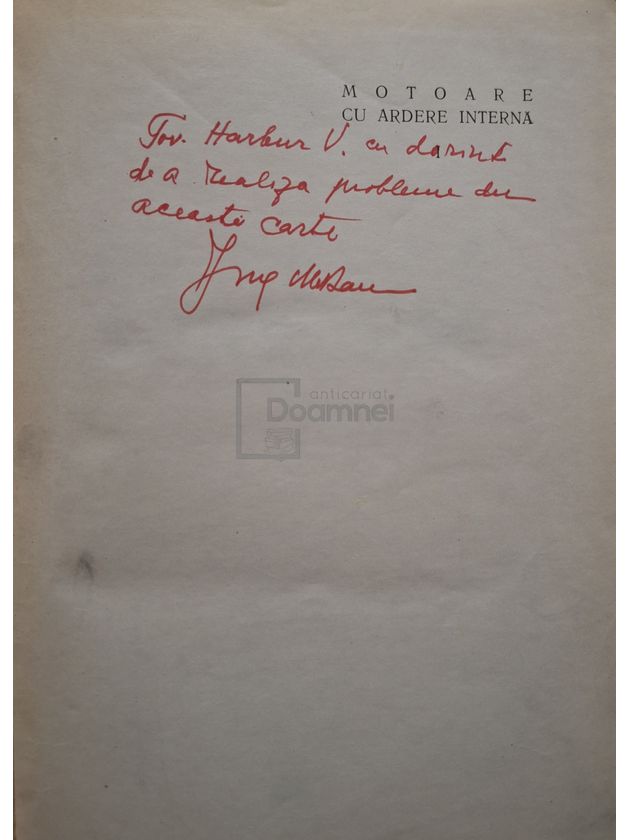 MOTOARE
CU ARDERE INTERNĂ
Tov. Harbur V. cu dorință
de a realiza probleme din
această carte
Ing
anticariat
Doamnei